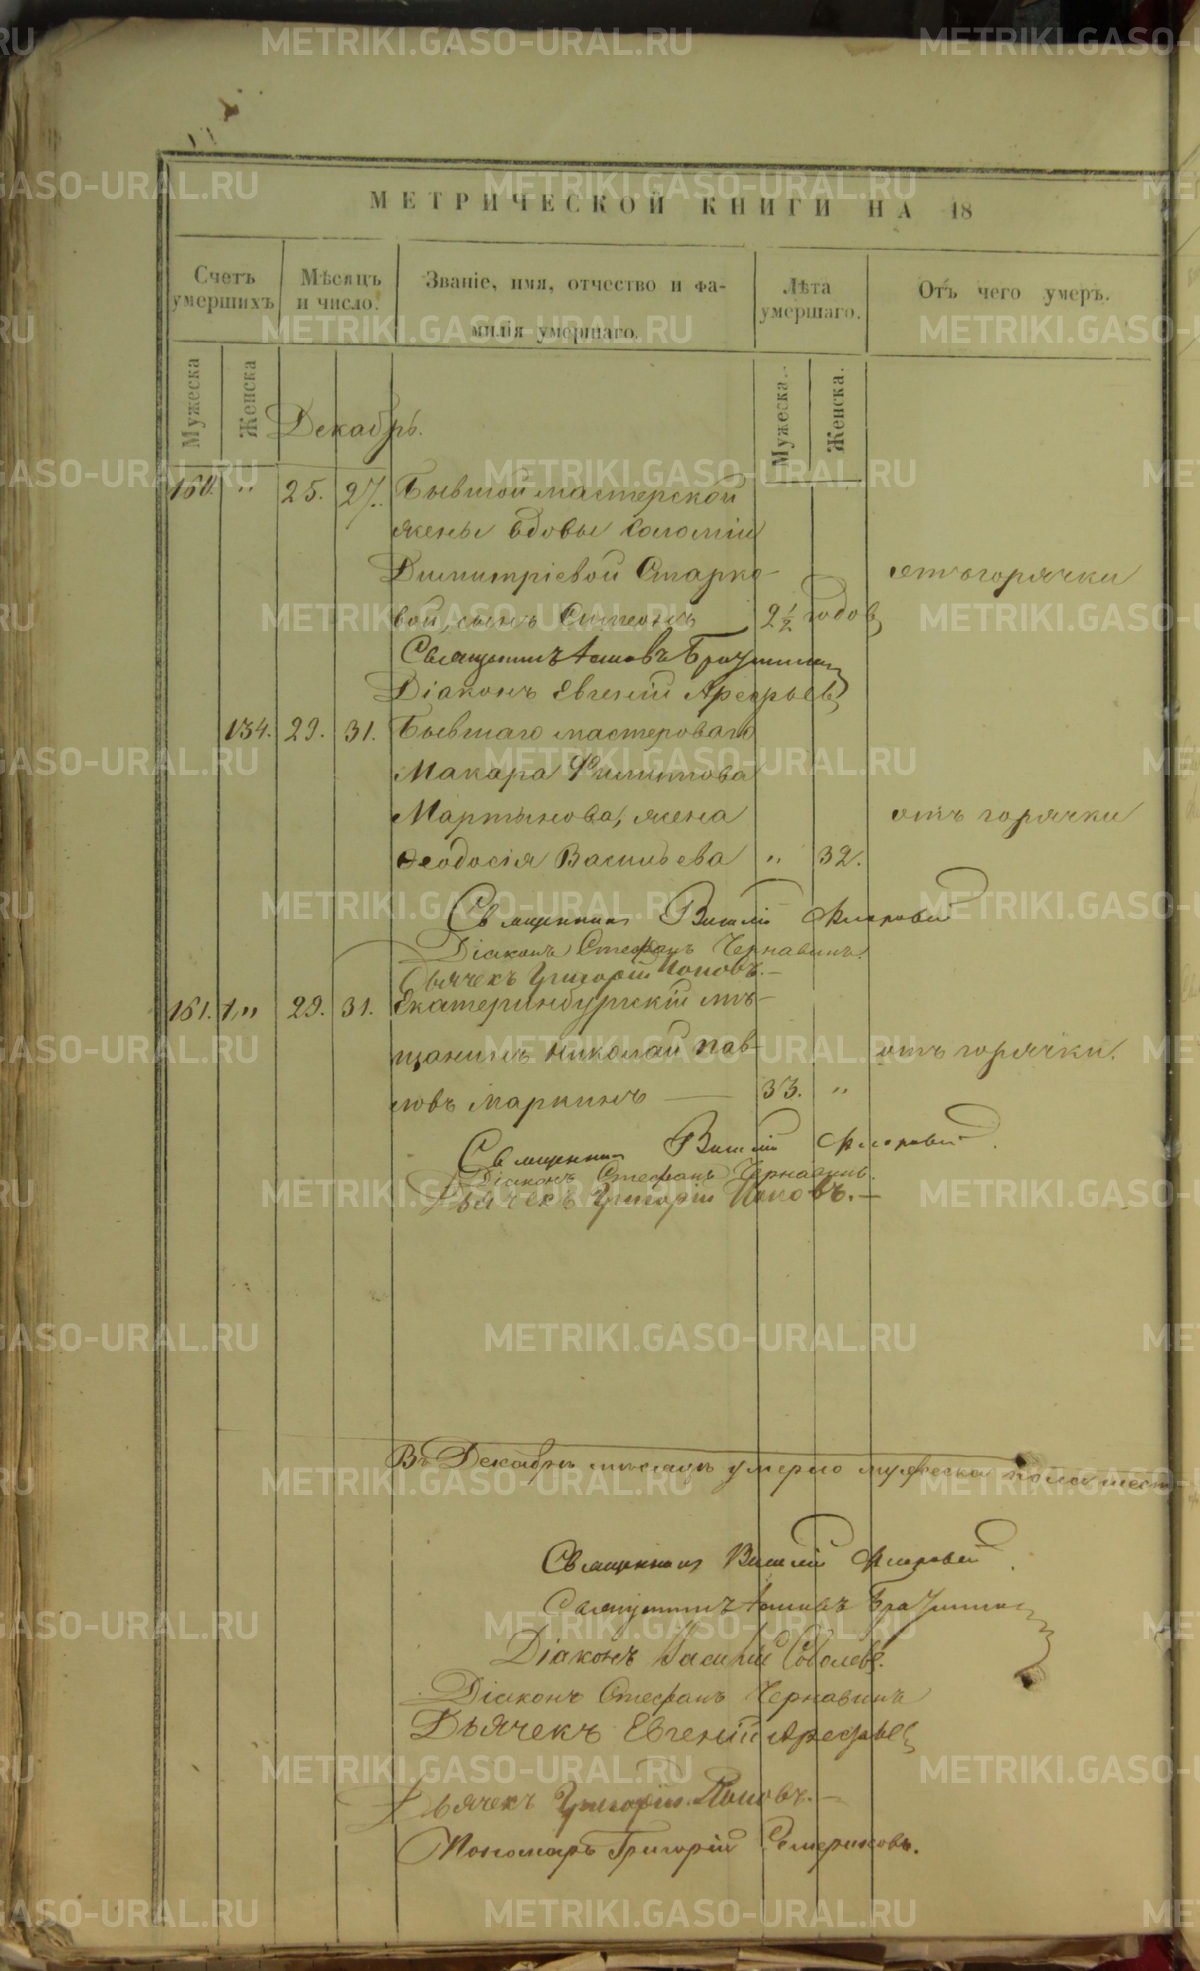 МЕТРИЧЕСКОЙ КНИГИ НА 18
Счетъ умершихъ.
Мѣсяцъ и число.
Званіе, имя, отчество и фамилія умершаго.
Лѣта умершаго.
Отъ чего умеръ.
Мужеска
Женска
Мужеска.
Женска.
Декабрь.
160. " 25. 27. Бывшой мастерской
жены вдовы Соломіи
Димитріевой Старко- отъ горячки
вой, сынъ Симеонъ 2½ годов
Священникъ Іаковъ
Діаконъ Евгеній Арефьевъ
134. 29. 31. Бывшаго мастероваго
Макара Филиппова
Мартынова, жена отъ горячки
Ѳеодосія Васильева " 32.
Священникъ Василій Флоровскій
Діаконъ Стефанъ Чернавинъ.
Дьячекъ Григорій Поповъ.
161. " 29. 31. Екатеринбургскій мѣ-
щанинъ Николай Пав- отъ горячки.
ловъ Маркинъ 33. "
Священникъ Василій Флоровскій.
Діаконъ Стефанъ Чернавинъ.
Дьячекъ Григорій Поповъ.
Въ Декабрѣ мѣсяцѣ умерло мужеска пола шест
Священникъ Василій Флоровскій.
Священникъ Іаковъ
Діаконъ Василій Соболевъ.
Діаконъ Стефанъ Чернавинъ
Дьячекъ Евгеній Арефьев
Дьячекъ Григорій Поповъ.
Пономарь Григорій Семериковъ.
METRIKI.GASO-URAL.RU